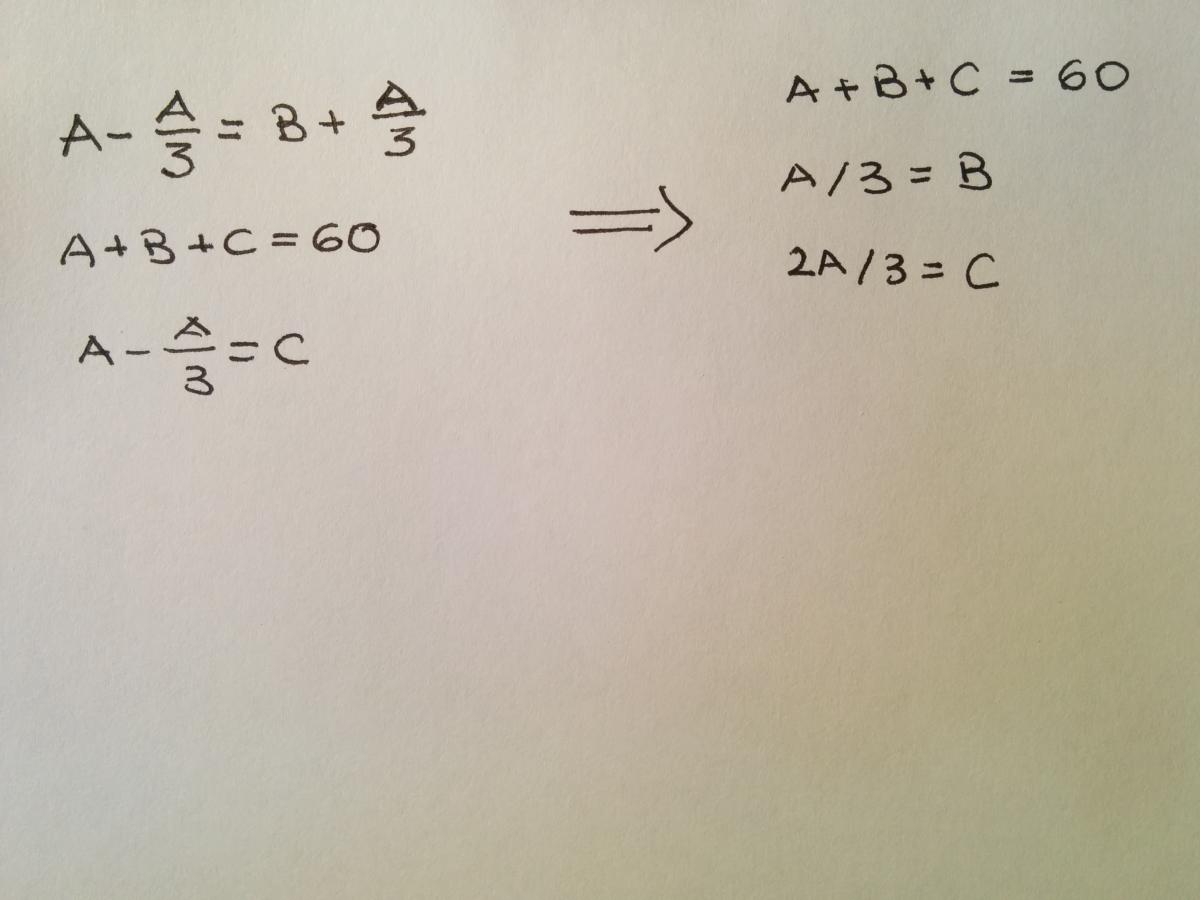 A - A/3 = B + A/3
A + B + C = 60
A - A/3 = C
⟹
A + B + C = 60
A / 3 = B
2A / 3 = C